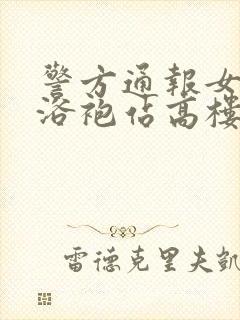 警方通報女
浴袍佔高樓
雷德克里夫凱